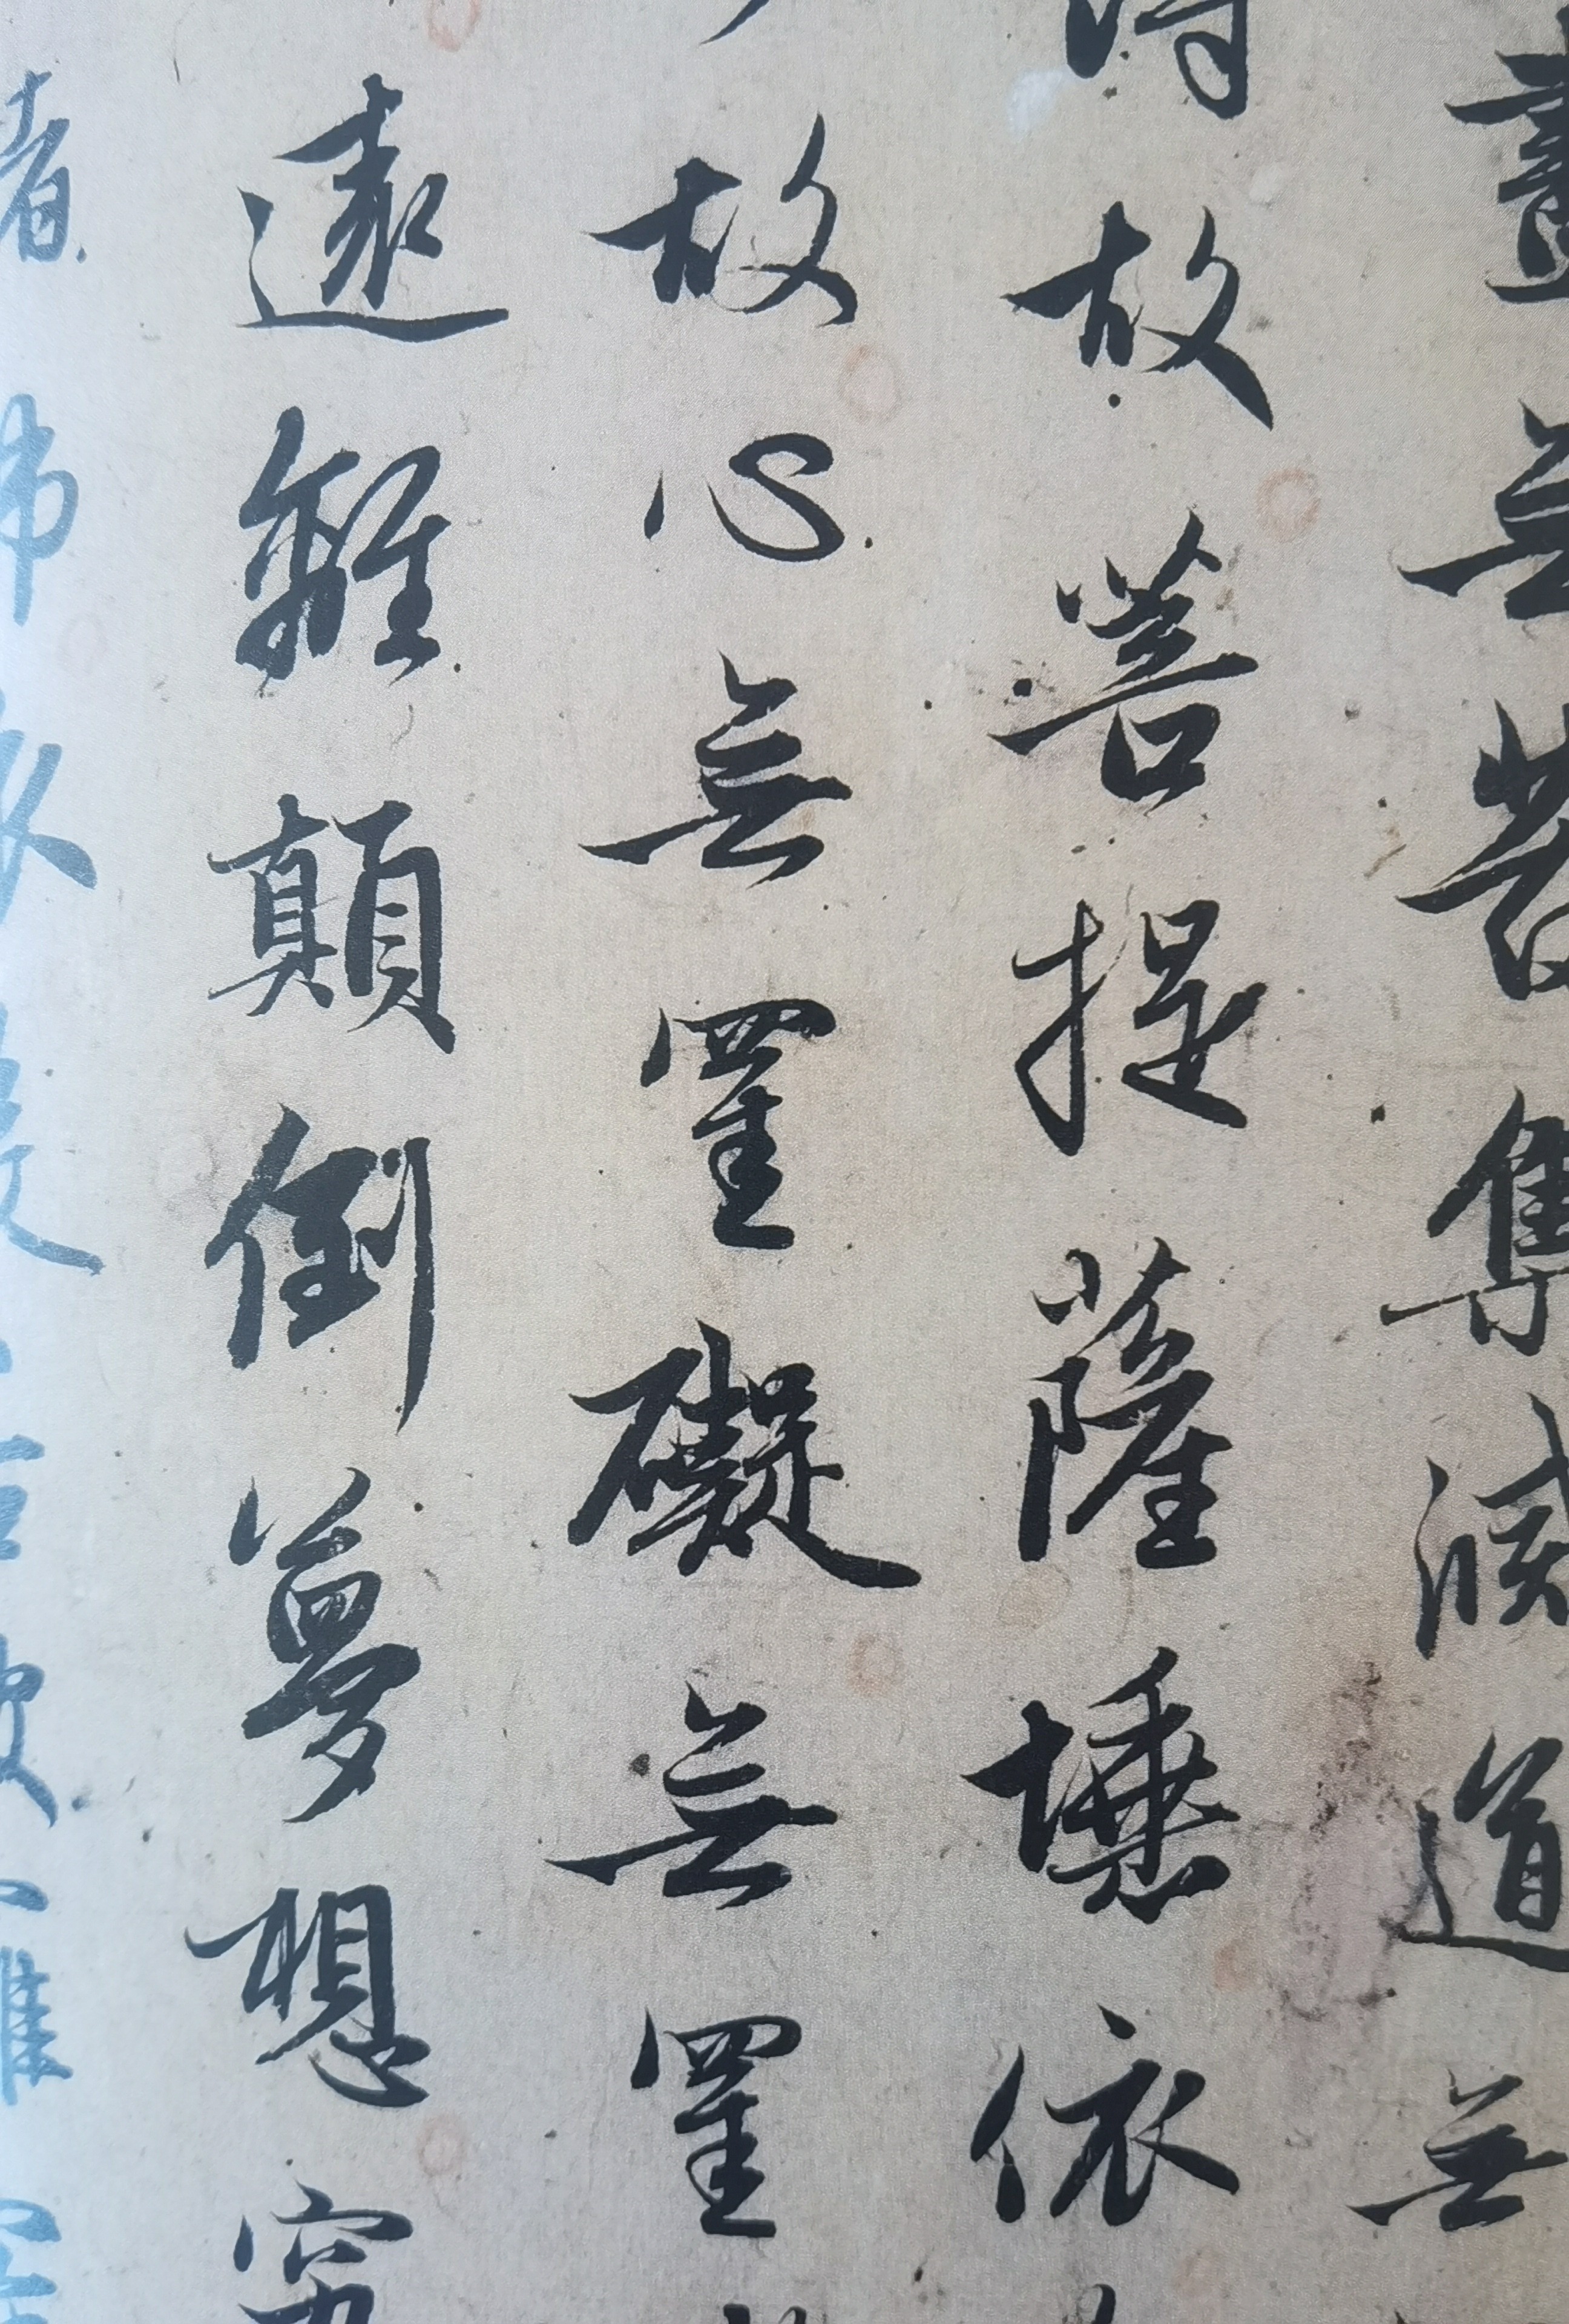 盡無苦集滅道無
得故菩提薩埵依
故心無罣礙無罣
遠離顛倒夢想
者